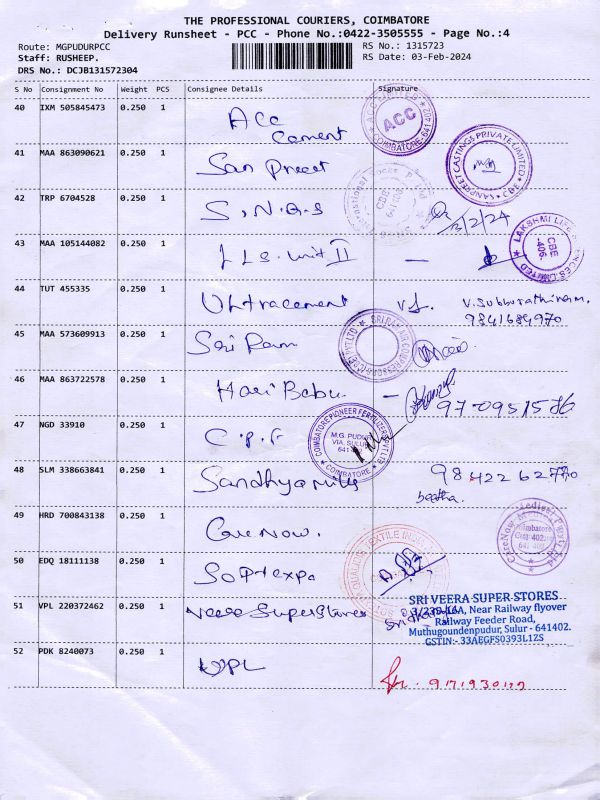 THE PROFESSIONAL COURIERS, COIMBATORE
Delivery Runsheet - PCC - Phone No.:0422-3505555 - Page No.:4
Route: MGPUDURPCC
RS No.: 1315723
Staff: RUSHEEP.
RS Date: 03-Feb-2024
DRS No.: DCJB131572304
S No Consignment No Weight PCS Consignee Details Signature
40 IXM 505845473 0.250 1 Acc cement
ACC LIMITED ACC COIMBATORE-641 402
41 MAA 863090621 0.250 1 San Preet
SANPREET CASTINGS PRIVATE LIMITED CBE
42 TRP 6704528 0.250 1 S.N.Q.S
CBE 3/2/24
43 MAA 105144082 0.250 1 LLS. unit II -
LAKSHMI LIMITED CBE -406.
44 TUT 455335 0.250 1 Ultracement V.S. V. Subburathinam,
9841684970
45 MAA 573609913 0.250 1 Sri Ram
46 MAA 863722578 0.250 1 Hari Babu -
97-0951576
47 NGD 33910 0.250 1 C.P.F
COIMBATORE PIONEER FERTILIZERS PVT LTD M.G. PUDUR VIA. SULUR COIMBATORE
48 SLM 338663841 0.250 1 Sandhya mills 9842262770
49 HRD 700843138 0.250 1 Care Now.
CareNow Coimbatore
50 EDQ 18111138 0.250 1 Soptexpo
TEXTILE
51 VPL 220372462 0.250 1 Veera Super Stores
SRI VEERA SUPER STORES
Near Railway flyover
Railway Feeder Road,
Muthugoundenpudur, Sulur - 641402.
GSTIN - 33AEGFS0393L1ZS
52 PDK 8240073 0.250 1 UPL